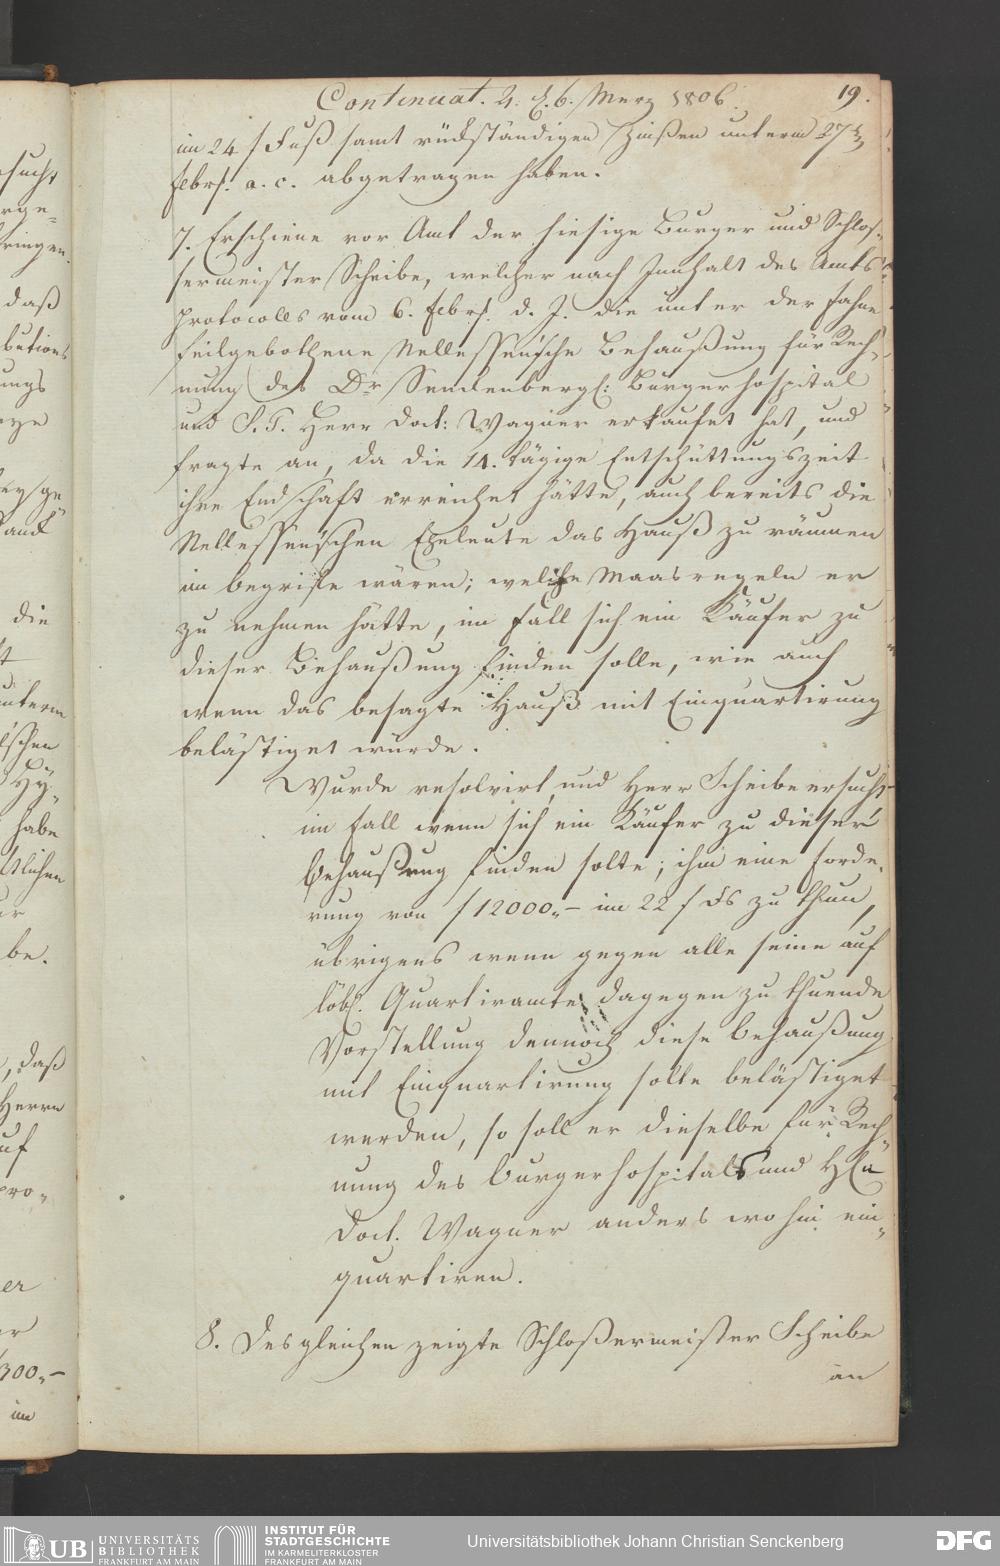 Continuat. 4. d. 6. Merz 1806.
19.
im 24 f Fuß samt rückständigen Zinßen unterm 27ten
febr. a. c. abgetragen haben.
7. Erschiene vor Amt der hiesige Burger und Schlos-
sermeister Scheibe, welcher nach Innhalt des Amts
Protocolls vom 6. febr. d. J. die unter der Fahne
feilgebothene Nellessen'sche Behaußung für Rech„
nung des Dr Senckenbergl: Burgerhospital
und S. T. Herr Doct: Wagner erkaufet hat, und
fragte an, da die 14. tägige Entschüttungszeit
ihre Endschaft erreichet hätte, auch bereits die
Nellessen'schen Eheleute das Hauß zu räumen
im begriffe wären; welche Maasregeln er
zu nehmen hätte, im Fall sich ein Käufer zu
dieser Behaußung finden solle, wie auch
wenn das besagte Hauß mit Einquartirung
belästiget würde.
Wurde resolvirt, und Herr Scheibe ersucht
im Fall wenn sich ein Käufer zu dieser
Behaußung finden solte; ihm eine Forde„
rung von f 12000„– im 22 f Fs zu thun,
übrigens wenn gegen alle seine auf
löbl. Quartiramte dagegen zu thuende
Vorstellung dennoch diese Behaußung
mit Einquartirung solte belästiget
werden, so soll er dieselbe für Rech„
nung des Burgerhospitals und H(n
Doct. Wagner anders wohin ein„
quartiren.
8. Desgleichen zeigte Schloßermeister Scheibe
an
sucht
rge„
ringen.
daß
butions
ungs
die
unterm
habe
be.
, daß
Herrn
uf
pro„
er
300„–
im
UB UNIVERSITÄTS
BIBLIOTHEK
FRANKFURT AM MAIN
INSTITUT FÜR
STADTGESCHICHTE
IM KARMELITERKLOSTER
FRANKFURT AM MAIN
Universitätsbibliothek Johann Christian Senckenberg
DFG